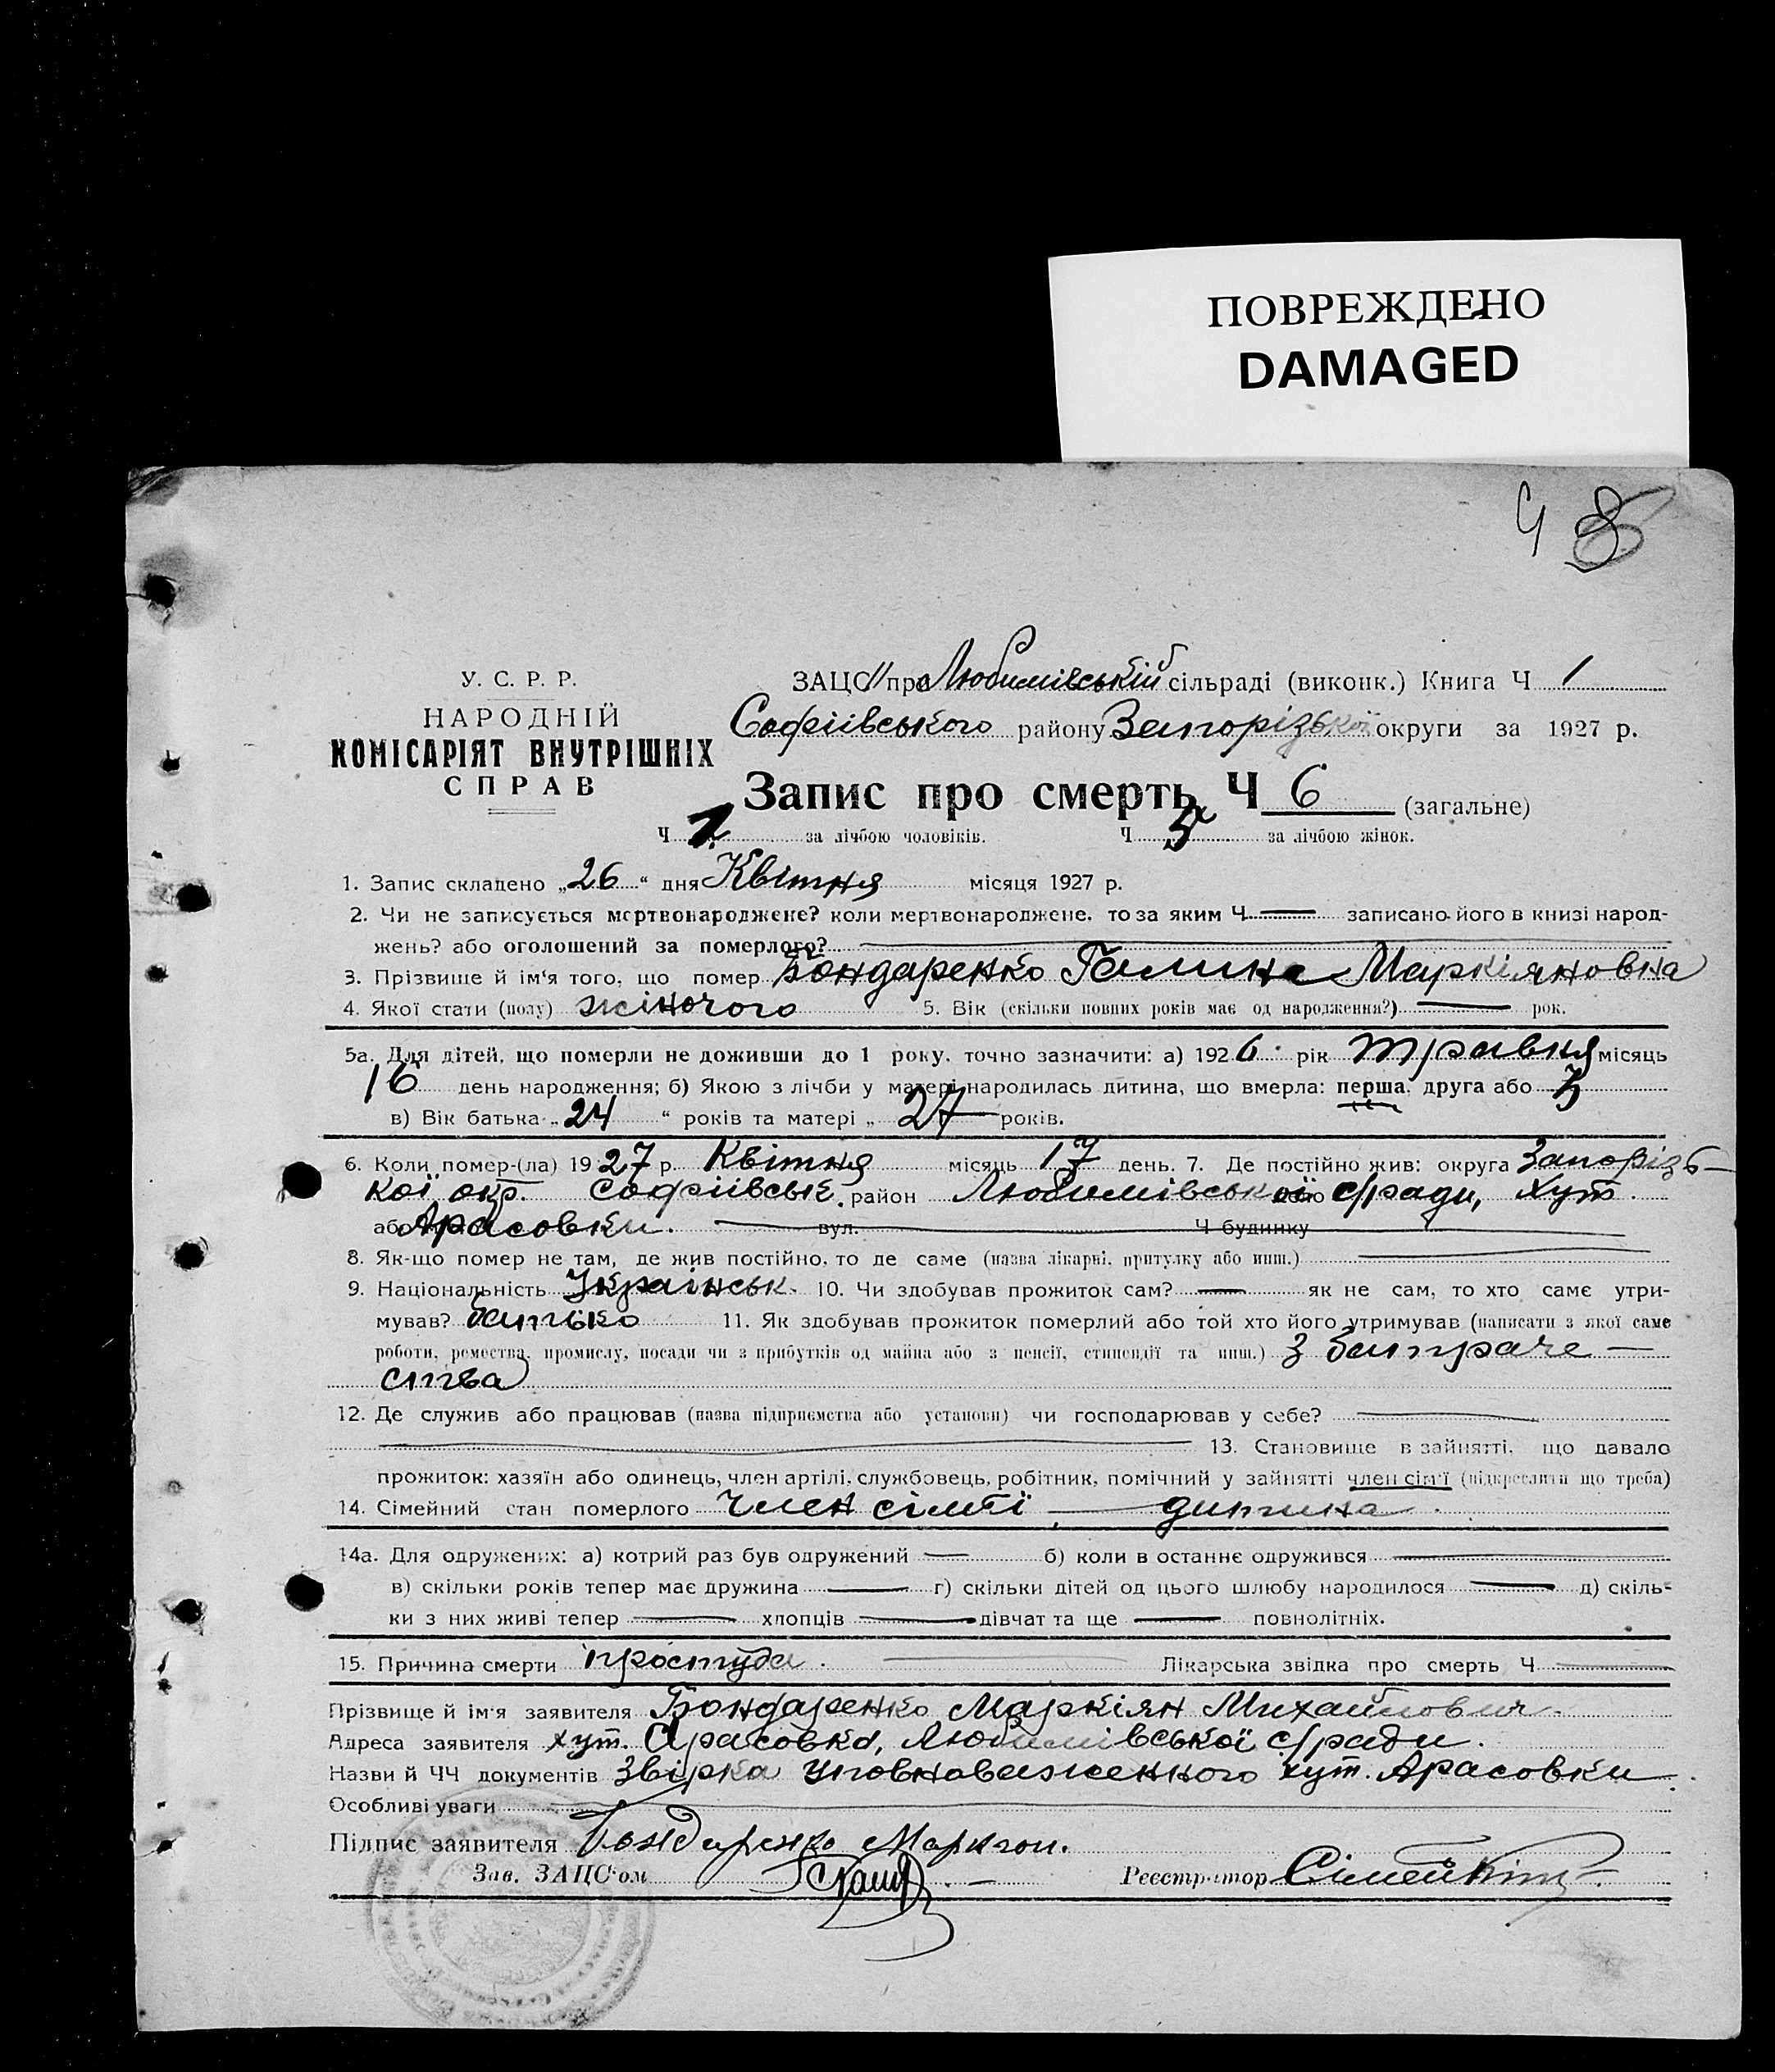 ПОВРЕЖДЕНО
DAMAGED
Ч 8
У. С. Р. Р.
НАРОДНІЙ
КОМІСАРІЯТ ВНУТРІШНІХ
СПРАВ
ЗАЦС при Любимівській сільраді (виконк.) Книга Ч 1
Софіївського району Запорізької округи за 1927 р.
Запис про смерть Ч 6 (загальне)
Ч 1 за лічбою чоловіків. Ч 5 за лічбою жінок.
1. Запис складено „26“ дня Квітня місяця 1927 р.
2. Чи не записується мертвонароджене? коли мертвонароджене, то за яким Ч — записано його в книзі народ-
жень? або оголошений за померлого?
3. Прізвище й ім'я того, що помер Бондаренко Галина Маркіяновна
4. Якої стати (полу) жіночого 5. Вік (скільки повних років має од народження?) — рок.
5а. Для дітей, що померли не доживши до 1 року, точно зазначити: а) 1926 рік травня місяць
16 день народження; б) Якою з лічби у матері народилась дитина, що вмерла: перша, друга або 3
в) Вік батька „24“ років та матері „27 років.
6. Коли помер-(ла) 1927 р. Квітня місяць 17 день. 7. Де постійно жив: округа Запорізь-
кої окр. Софіївськ. район Любимівської с/ради, хут.
або Арасовки. вул. Ч будинку
8. Як-що помер не там, де жив постійно, то де саме (назва лікарні, притулку або инш.)
9. Національність Українськ. 10. Чи здобував прожиток сам? — як не сам, то хто саме утри-
мував? батько 11. Як здобував прожиток померлий або той хто його утримував (написати з якої саме
роботи, ремества, промислу, посади чи з прибутків од майна або з пенсії, стипендії та инш.) З батраче-
ства
12. Де служив або працював (назва підприємства або установи) чи господарював у себе?
13. Становище в зайнятті, що давало
прожиток: хазяїн або одинець, член артілі, службовець, робітник, помічний у зайнятті член сім'ї (підкреслити що треба)
14. Сімейний стан померлого член сімї — дитина
14а. Для одружених: а) котрий раз був одружений — б) коли в останнє одружився
в) скільки років тепер має дружина — г) скільки дітей од цього шлюбу народилося — д) скіль-
ки з них живі тепер — хлопців — дівчат та ще — повнолітніх.
15. Причина смерти простуда. Лікарська звідка про смерть Ч
Прізвище й ім'я заявителя Бондаренко Маркіян Михайлович.
Адреса заявителя хут. Арасовка, Любимівської с/ради.
Назви й ЧЧ документів Звірка уповноваженного хут. Арасовки.
Особливі уваги
Підпис заявителя Бондаренко Маркіон.
Зав. ЗАЦС'ом Реєстратор